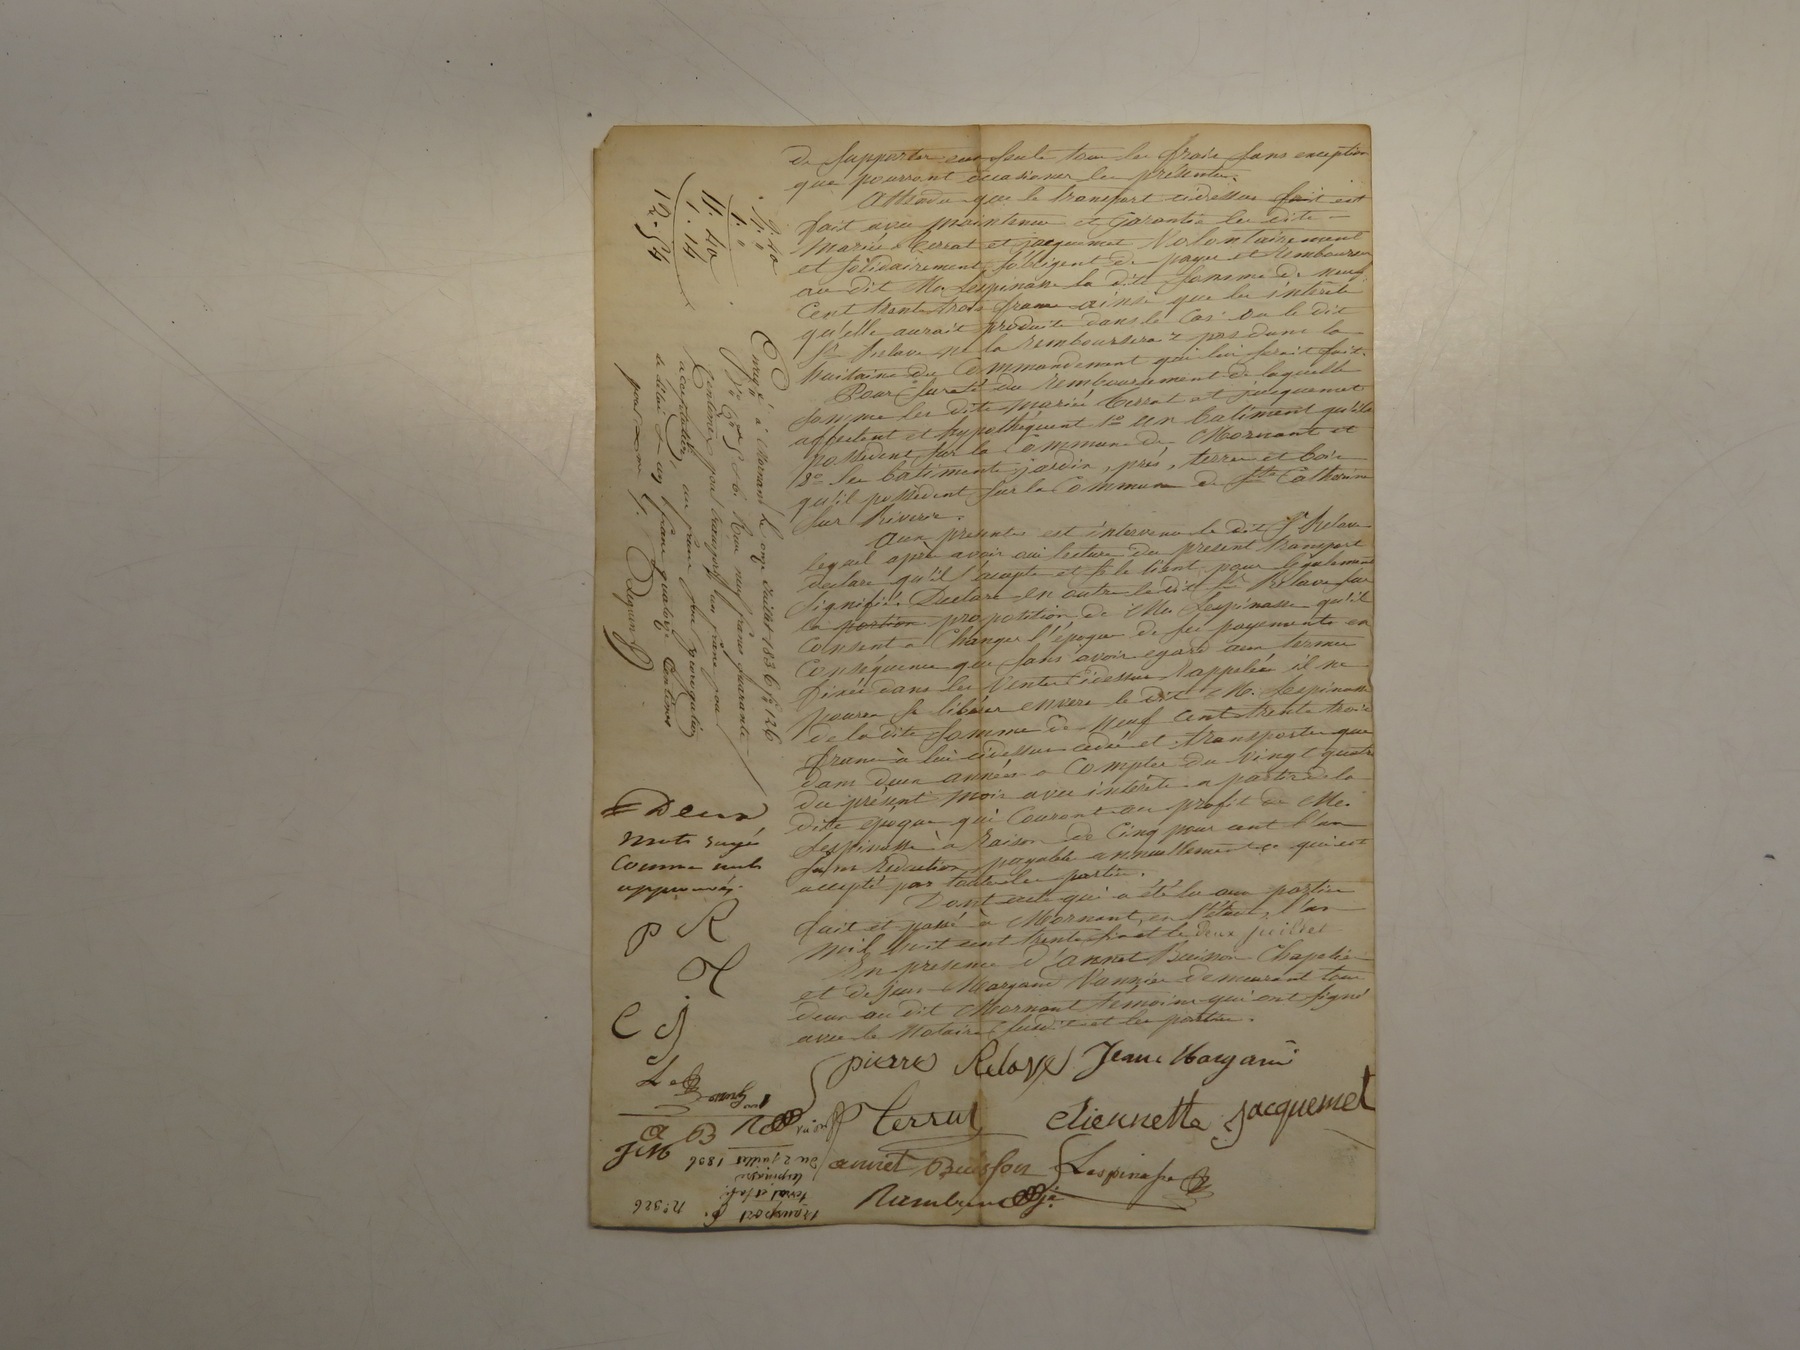 de supporter eux seuls tous les frais sans exception
que pourront occasioner les présentes.
Attendu que le transport cidessus fait est
fait avec maintenue et garantie les dits
Mariés Terrat et jacquemet Volontairement
et solidairement s'obligent de payer et rembourser
au dit Me Lespinasse la dite somme de neuf
Cent trente trois francs ainsi que les intérêts
qu'elle aurait produits dans le Cas où le dit
Sr Relave ne la rembourserait pas dans la
huitaine du Commandement qui lui serait fait.
Pour sureté du remboursement de laquelle
somme les dits mariés Terrat et jacquemet
affectent et hypothèquent 1° un batiment qu'ils
possèdent sur la Commune de Mornant et
2° les batiments, jardin, prés, terres et bois
qu'ils possèdent sur la Commune de Ste Catherine
sur Riverie.
Aux presentes est intervenu le dit Sr Relave
lequel après avoir oui lecture du present transport
declare qu'il l'accepte et se le tient pour légalement
signifié. Declare en outre le dit Sr Relave sur
la portion proposition de Me Lespinasse qu'il
consent a Changer l'époque de ses payements en
Conséquence que sans avoir egard aux termes
fixés dans les Ventes cidessus rappelées il ne
pourra se libérer envers le dit Me. Lespinasse
de la dite somme de neuf cent trente trois
francs à lui cidessus cedée et transportée que
dans deux années a Compter du Vingt quatre
du présent mois avec intérêts a partir de la
dite époque qui Courront au profit de Me.
Lespinasse à raison de Cinq pour cent l'an
sans reduction payable annuellement ce qui est
accepté par toutes les parties.
Dont acte qui a été lu aux parties
fait et passé à Mornant, en l'étude, l'an
mil huit cent trente six et le deux juillet
En presence d'annet Buisson Chapelier
et de Jean Margand Vannier demeurant tous
deux au dit Mornant témoins qui ont signé
avec le Notaire susdit et les parties.
pierre Relave Jean Margand
Terrat etiennette jacquemet
annet Buisson Lespinasse
Rambaud
9. 40
1. 0
1. 0
11. 40
1. 14
12. 54
Enregé à Mornant le onze Juillet 1836 f° 126
Ro Reçu neuf francs quarante
centimes pour transport, un franc pour
acceptation, un franc pour prorogation
de délai et un franc quatorze Centimes
pour
Deux
mots rayés
comme nuls
approuvés.
P R
T
E J
Le
A B
J M
N° 326
transport
terrat et
lespinasse
du 2 juillet 1836